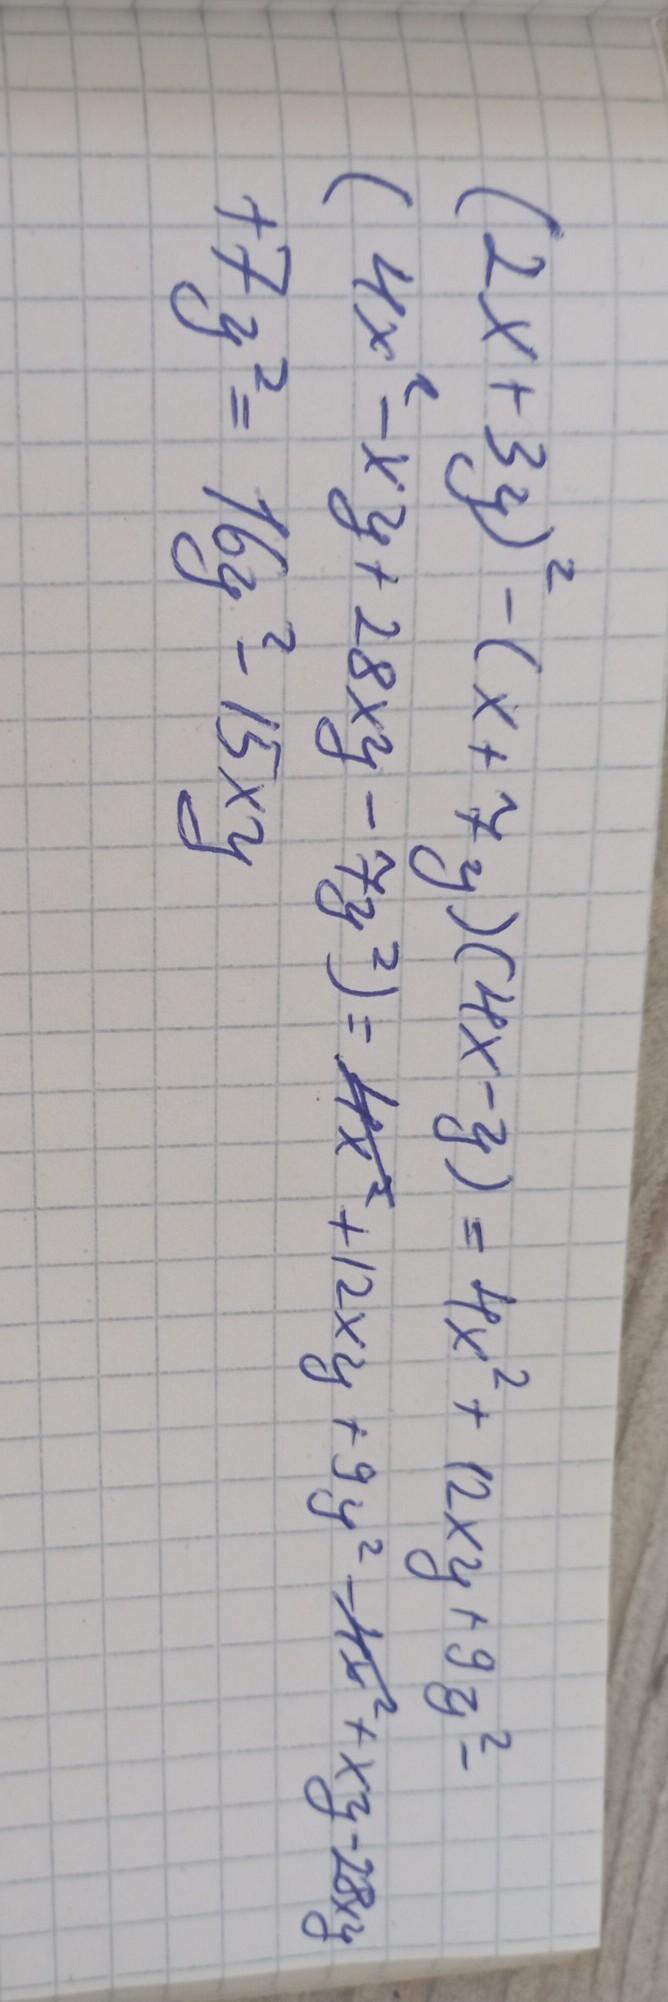 (2x+3y)² - (x+7y)(4x-y) = 4x² + 12xy + 9y² -
(4x² - xy + 28xy - 7y²) = 4x² + 12xy + 9y² - 4x² + xy - 28xy
+7y² = 16y² - 15xy